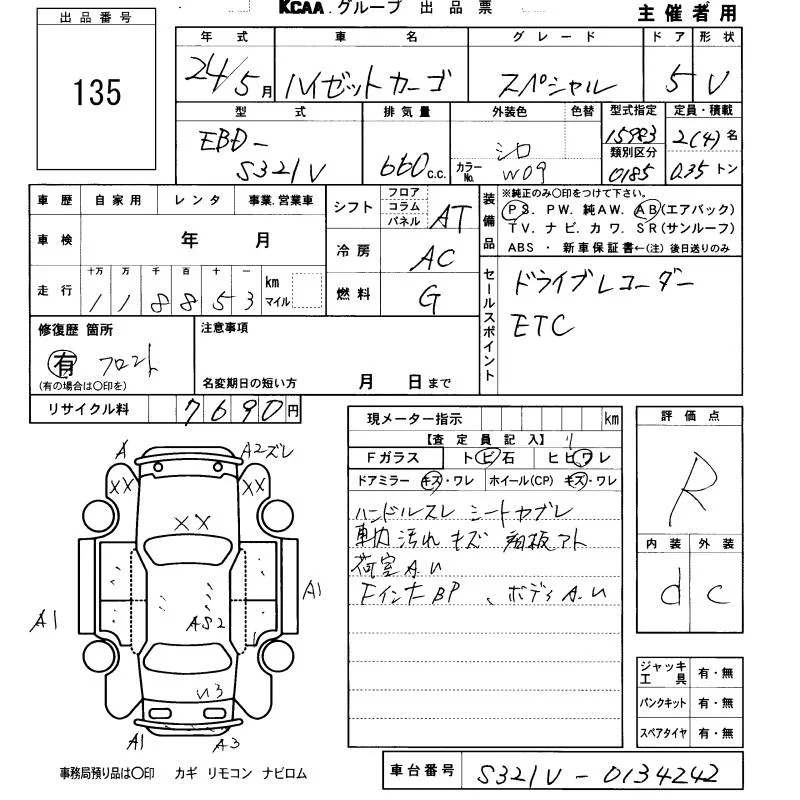 KCAA.グループ 出品票
主催者用
出品番号
135
年式 車名 グレード ドア 形状
24/5月 ハイゼットカーゴ スペシャル 5 V
型式 排気量 外装色 色替 型式指定 定員・積載
EBD-S321V 660c.c. シロ 15983 2(4)名
カラーNo. W09 類別区分 0185 0.35トン
車歴 自家用 レンタ 事業.営業車
車検 年 月
走行 十万 万 千 百 十 一 km マイル
118853
シフト フロア コラム パネル AT
冷房 AC
燃料 G
装備品
※純正のみ○印をつけて下さい。
PS. PW. 純AW. AB(エアバック)
TV. ナビ. カワ. SR(サンルーフ)
ABS ・ 新車保証書←(注) 後日送りのみ
セールスポイント
ドライブレコーダー
ETC
修復歴 箇所
有 フロント
(有の場合は○印を)
注意事項
名変期日の短い方 月 日まで
リサイクル料 7690円
現メーター指示 km
【査定員記入】
Fガラス トビ石 ヒビワレ
ドアミラー キズ・ワレ ホイール(CP) キズ・ワレ
ハンドルスレ シートヤブレ
汚れ キズ 看板アト
荷室A.U
FインナーBP、ボディA.U
評価点
R
内装 外装
d c
ジャッキ工具 有・無
パンクキット 有・無
スペアタイヤ 有・無
A A2ズレ
XX XX
XX
A1
A1
AS2
U3
A1 A3
事務局預り品は○印 カギ リモコン ナビロム
車台番号 S321V-0134242